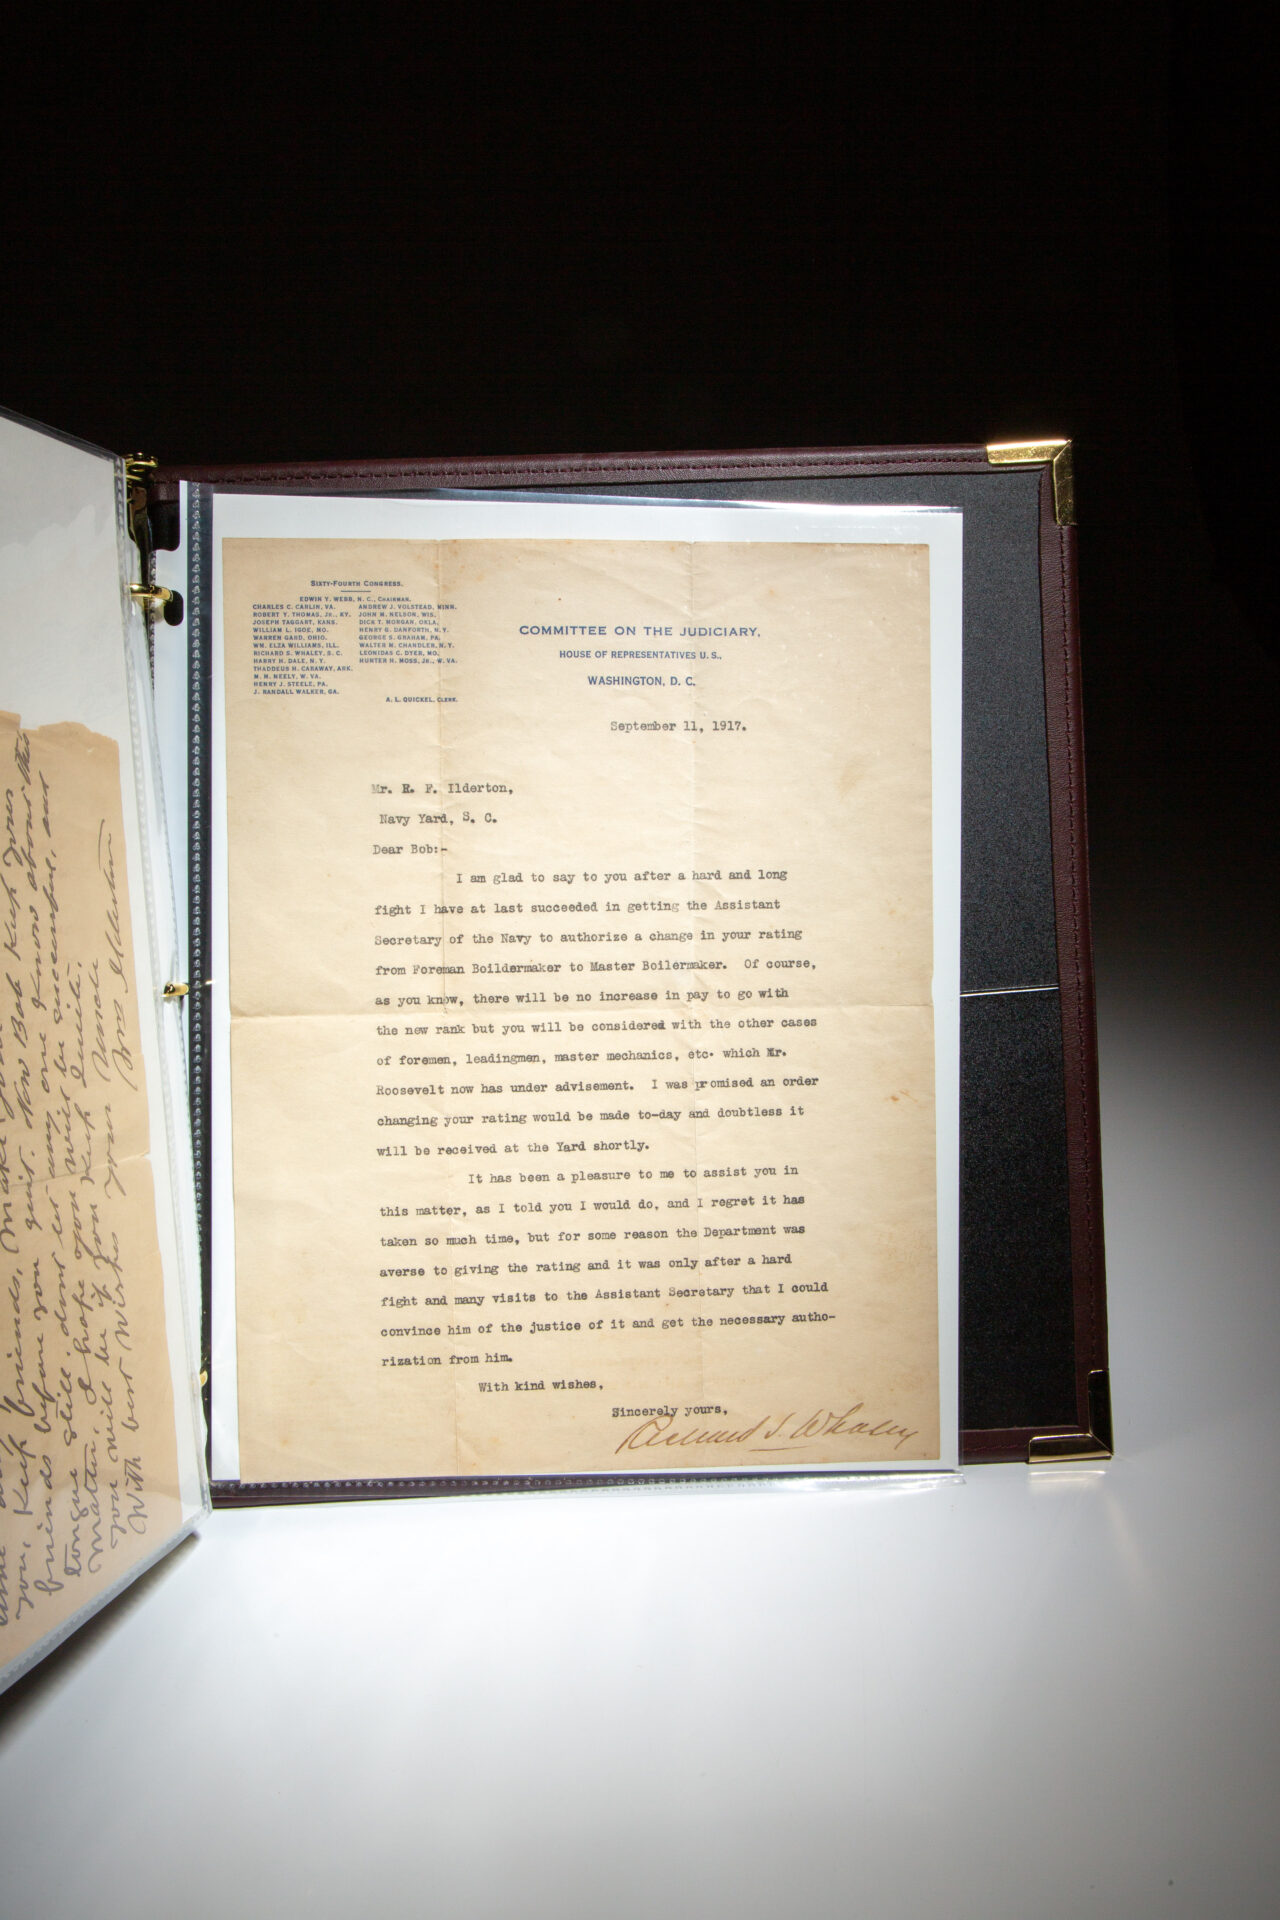 you, Keep friends, Make
friends before you quit. Now Bob Keep your
tongue still. dont let any one Know about this
matter, I hope you will be successful, and
you will be if you Keep Quite.
With best Wishes your Uncle
Wm Ilderton
SIXTY-FOURTH CONGRESS.
EDWIN Y. WEBB, N. C., CHAIRMAN.
CHARLES C. CARLIN, VA. ANDREW J. VOLSTEAD, MINN.
ROBERT Y. THOMAS, JR., KY. JOHN M. NELSON, WIS.
JOSEPH TAGGART, KANS. DICK T. MORGAN, OKLA.
WILLIAM L. IGOE, MO. HENRY G. DANFORTH, N. Y.
WARREN GARD, OHIO. GEORGE S. GRAHAM, PA.
WM. ELZA WILLIAMS, ILL. WALTER M. CHANDLER, N. Y.
RICHARD S. WHALEY, S. C. LEONIDAS C. DYER, MO.
HARRY H. DALE, N. Y. HUNTER H. MOSS, JR., W. VA.
THADDEUS H. CARAWAY, ARK.
M. M. NEELY, W. VA.
HENRY J. STEELE, PA.
J. RANDALL WALKER, GA.
A. L. QUICKEL, CLERK.
COMMITTEE ON THE JUDICIARY,
HOUSE OF REPRESENTATIVES U. S.,
WASHINGTON, D. C.
September 11, 1917.
Mr. R. F. Ilderton,
Navy Yard, S. C.
Dear Bob:-
I am glad to say to you after a hard and long
fight I have at last succeeded in getting the Assistant
Secretary of the Navy to authorize a change in your rating
from Foreman Boildermaker to Master Boilermaker. Of course,
as you know, there will be no increase in pay to go with
the new rank but you will be considered with the other cases
of foremen, leadingmen, master mechanics, etc. which Mr.
Roosevelt now has under advisement. I was promised an order
changing your rating would be made to-day and doubtless it
will be received at the Yard shortly.
It has been a pleasure to me to assist you in
this matter, as I told you I would do, and I regret it has
taken so much time, but for some reason the Department was
averse to giving the rating and it was only after a hard
fight and many visits to the Assistant Secretary that I could
convince him of the justice of it and get the necessary autho-
rization from him.
With kind wishes,
Sincerely yours,
Richard S. Whaley